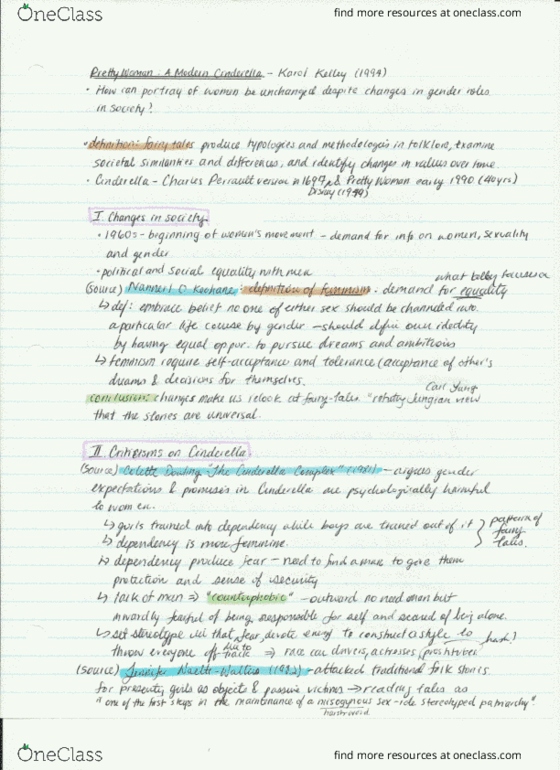 OneClass
find more resources at oneclass.com
Pretty Woman: A Modern Cinderella - Karol Kelley (1994)
• How can portray of women be unchanged despite changes in gender roles
in society?
• definition: fairy tales produce typologies and methodologies in folklore, examine
societal similarities and differences, and identify changes in values over time.
• Cinderella - Charles Perrault version in 1697 & Pretty Woman early 1990 (40yrs)
Disney (1949)
I. Changes in society.
• 1960s - beginning of women's movement - demand for info on women, sexuality
and gender
• political and social equality with men
what kelley focuses on
(Source) Nannerl O. Keohane : definition of feminism. demand for equality
↳ def: embrace belief no one of either sex should be channeled into
a particular life course by gender - should define own identity
by having equal oppor. to pursue dreams and ambitions
↳ feminism require self-acceptance and tolerance (acceptance of other's
dreams & decisions for themselves.
Carl Jung
conclusion: changes make us relook at fairy-tales. Jungian view
that the stories are universal.
II. Criticisms on Cinderella
(source) Colette Dowling "The Cinderella Complex" (1981) - argues gender
expectations & promises in Cinderella are psychologically harmful
to women.
↳ girls trained into dependency while boys are trained out of it } pattern of
↳ dependency is more feminine. fairy tales.
↳ dependency produce fear - need to find a man to give them
protection and sense of security
↳ lack of man ⇒ "counterphobic" - outward no need man but
inwardly fearful of being responsible for self and scared of being alone.
↳ set stereotype will that fear, devote energy to construct a style to
throw everyone off track ⇒ race car drivers, actresses, prostitutes
(Source) (1982) - attacked traditional folk stories
for presenting girls as objects & passive victims → reading tales as
"one of the first steps in the maintenance of a misogynous sex-role stereotyped patriarchy".
OneClass
find more resources at oneclass.com